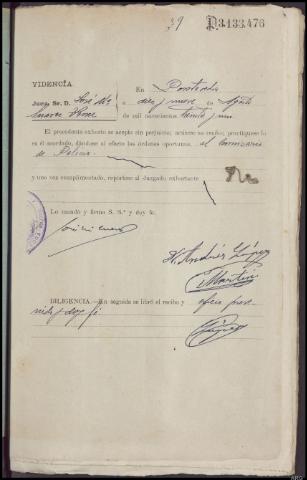 39
D.3.133,476
VIDENCIA
Juez, Sr. D. José Mª
Suarez
En Ponteve
a diez y nueve de Agosto
de mil novecientos treinta y uno
El precedente exhorto se acepta sin perjuicio; acúsese su recibo; practíquese lo
en él acordado, dándose al efecto las órdenes oportunas, al Comisario
de Policia
y una vez cumplimentado, repórtese al Juzgado exhortante
Lo mandó y firma S. S.ª y doy fe.
H. Andrés López
Martín
DILIGENCIA.—En seguida se libró el recibo y oficio preve-
nido, doy fé